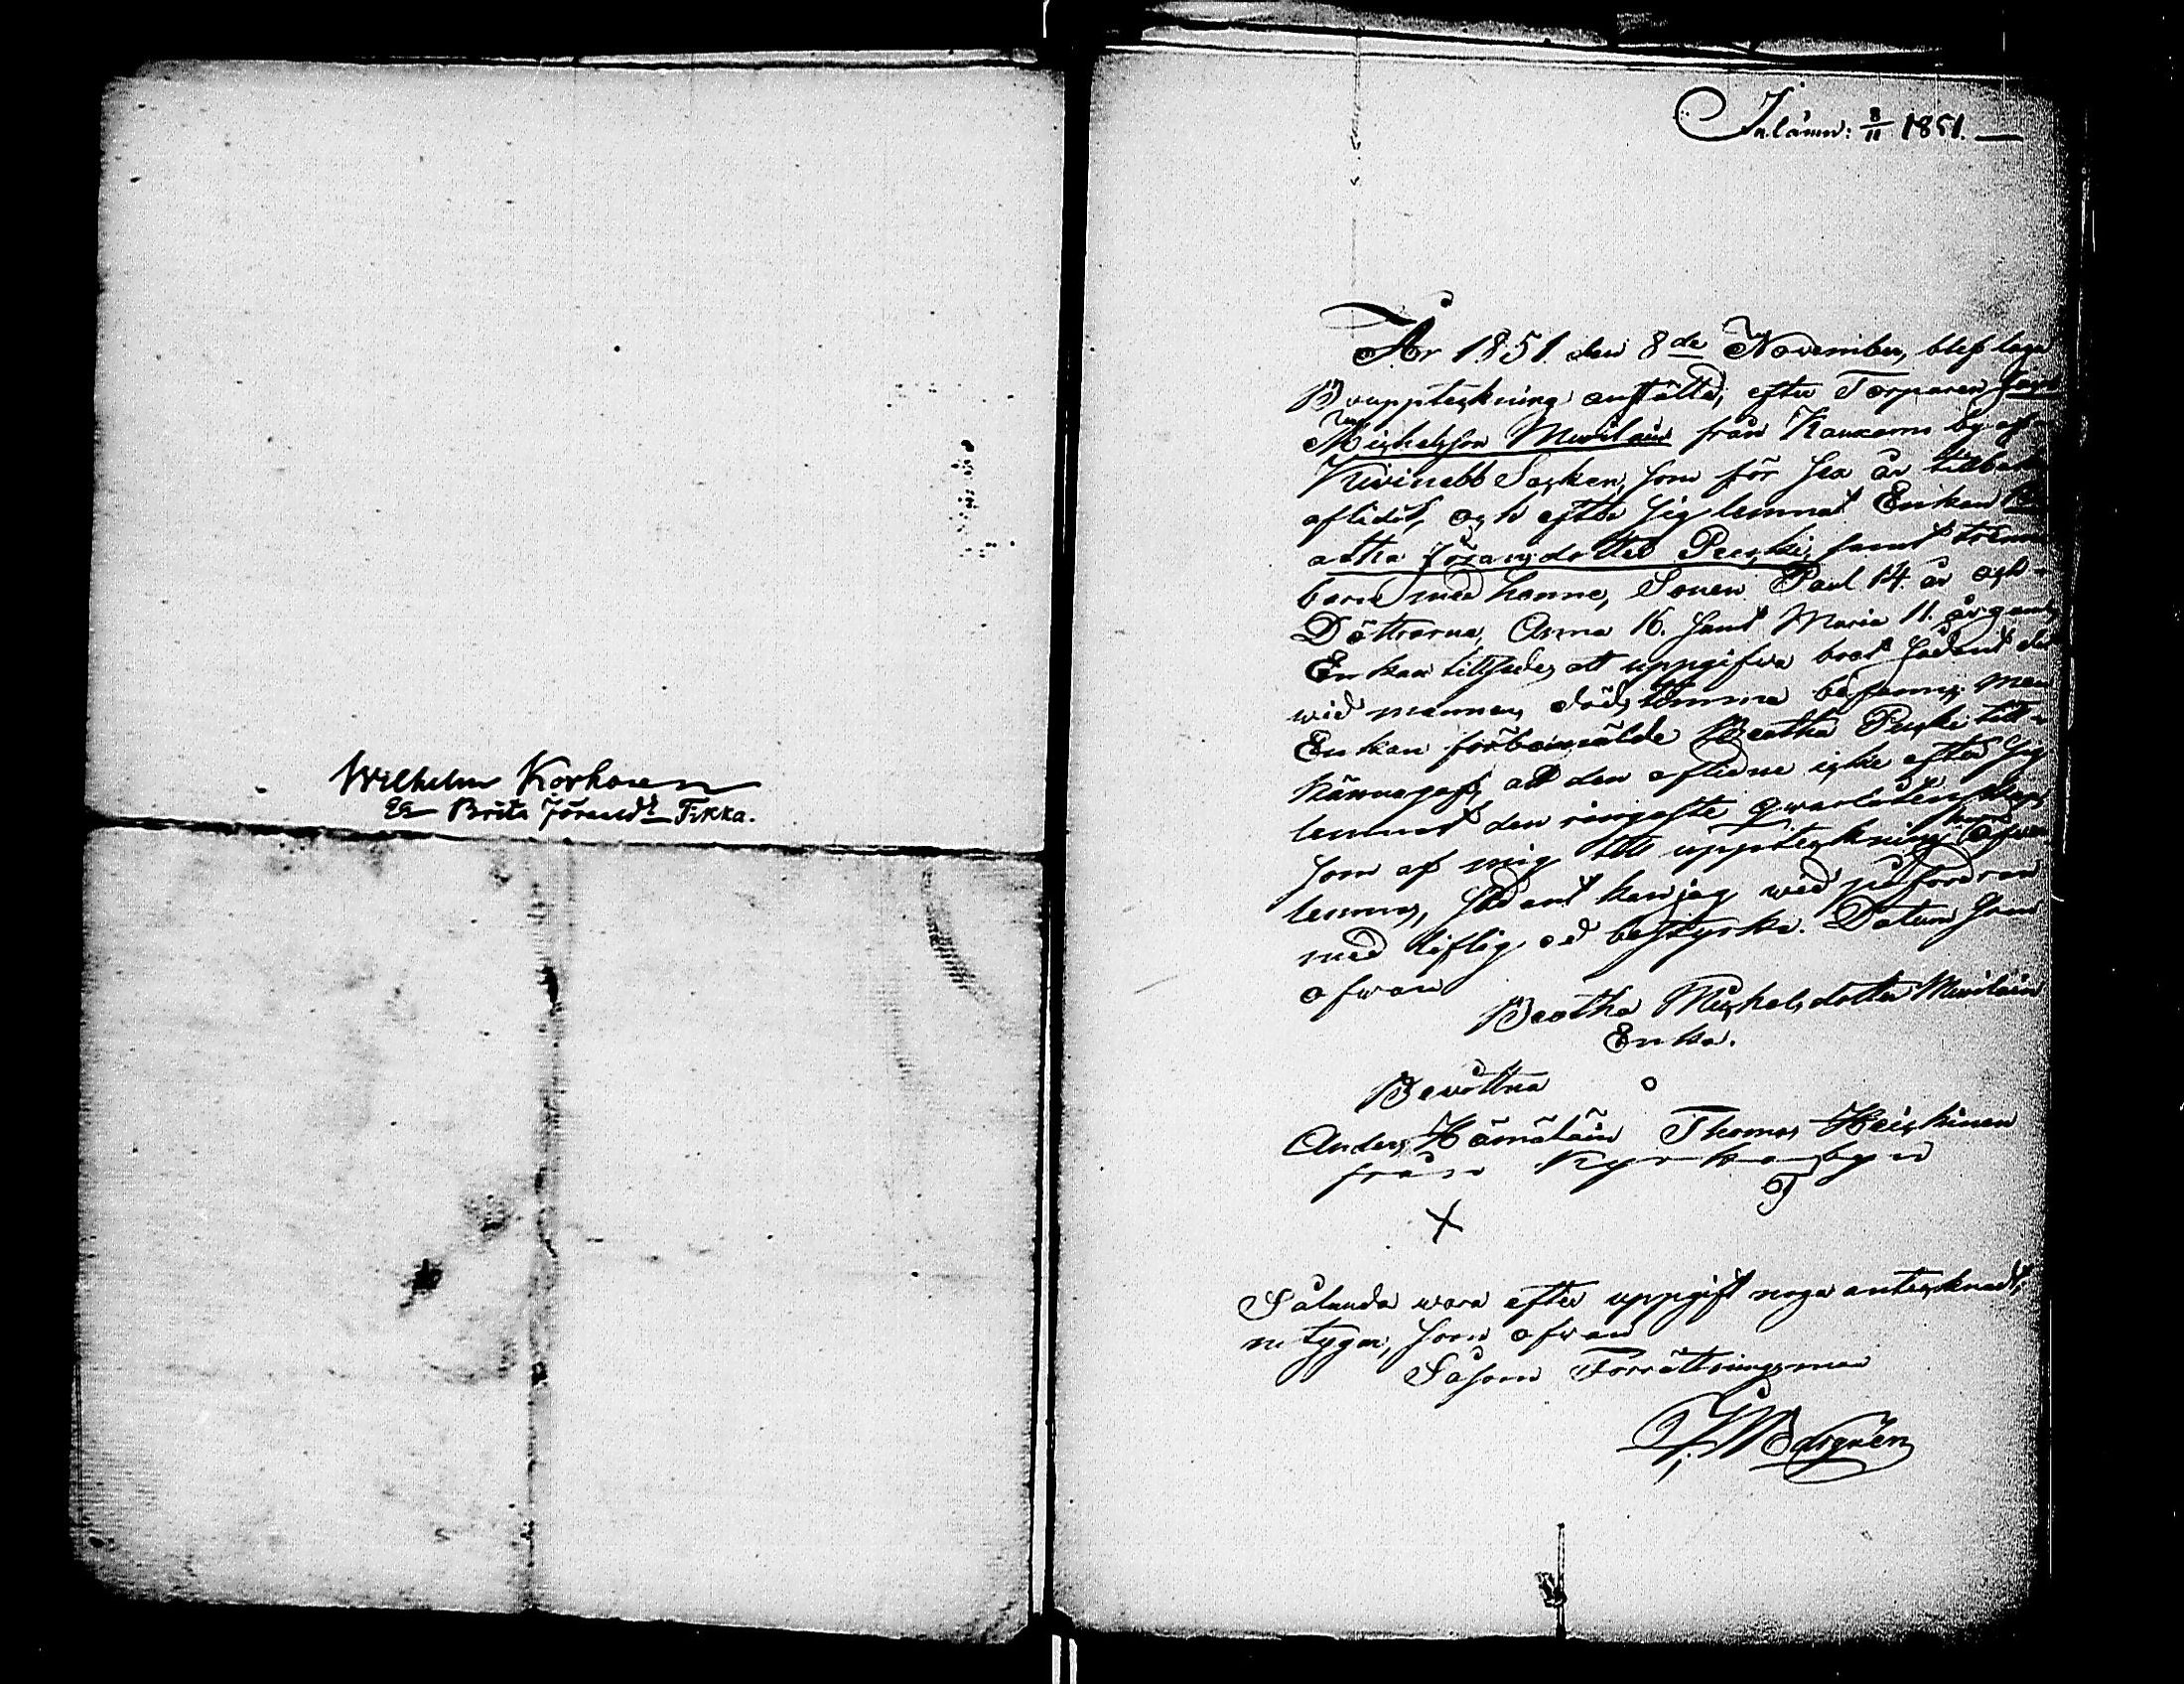 Wilhelm Korhonen
Brita Jöransdt Tikka.
Inlämn: 8/11 1851.
År 1851. den 8de November, blef laga
Bouppteckning anstäld, efter Torparen
Michelsson Murilain från by af
Kivinebb Socken, som för sex år tillbaka
aflidit, och efter sig lemnat Enkan
samt
barn med henne, Sonen Paul 14. år och
Döttrarna, Anna 16. samt Maria 11. år gamla
Enkan tillsades att uppgifva boet sådant det
wid mannens dödstimma befanns, men
Enkan förbemälde Beatha Puski till-
kännagaf, att den aflidne icke efter sig
lemnat den ringaste qvarlåtenskap
som af mig till uppteckning
lemnas, sådant kan jag wid påfordran
med liflig ed bestyrka. Datum som
ofwan
Beatha Michelsdotter Murilain
Enka.
Bewittna
Anders Hämäläin Thomas Heiskinen
från Kyrkobyn
Sålunda wara efter uppgift noga antecknadt,
m tygar, som ofwan
Såsom Förrättningsman